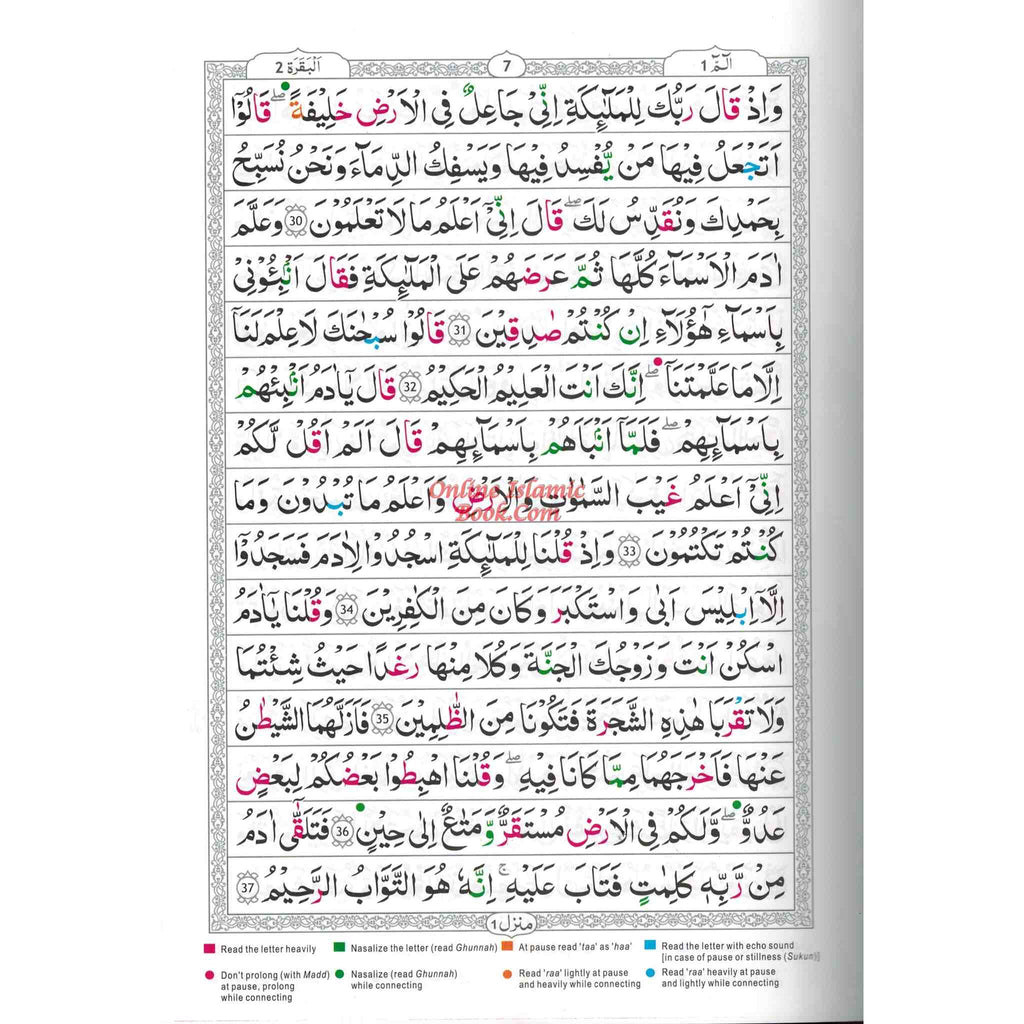 الٓمّٓ 1
7
اَلْبَقَرَة 2
وَاِذْ قَالَ رَبُّكَ لِلْمَلٰٓئِكَةِ اِنِّیْ جَاعِلٌ فِی الْاَرْضِ خَلِیْفَةً ؕ قَالُوْۤا
اَتَجْعَلُ فِیْهَا مَنْ یُّفْسِدُ فِیْهَا وَیَسْفِكُ الدِّمَآءَ وَنَحْنُ نُسَبِّحُ
بِحَمْدِكَ وَنُقَدِّسُ لَكَ ؕ قَالَ اِنِّیْۤ اَعْلَمُ مَا لَا تَعْلَمُوْنَ 30 وَعَلَّمَ
اٰدَمَ الْاَسْمَآءَ كُلَّهَا ثُمَّ عَرَضَهُمْ عَلَی الْمَلٰٓئِكَةِ فَقَالَ اَنْۢبِـُٔوْنِیْ
بِاَسْمَآءِ هٰۤؤُلَآءِ اِنْ كُنْتُمْ صٰدِقِیْنَ 31 قَالُوْا سُبْحٰنَكَ لَا عِلْمَ لَنَاۤ
اِلَّا مَا عَلَّمْتَنَا ؕ اِنَّكَ اَنْتَ الْعَلِیْمُ الْحَكِیْمُ 32 قَالَ یٰۤاٰدَمُ اَنْۢبِئْهُمْ
بِاَسْمَآئِهِمْ ۚ فَلَمَّاۤ اَنْۢبَاَهُمْ بِاَسْمَآئِهِمْ قَالَ اَلَمْ اَقُلْ لَّكُمْ
اِنِّیْۤ اَعْلَمُ غَیْبَ السَّمٰوٰتِ وَالْاَرْضِ وَاَعْلَمُ مَا تُبْدُوْنَ وَمَا
كُنْتُمْ تَكْتُمُوْنَ 33 وَاِذْ قُلْنَا لِلْمَلٰٓئِكَةِ اسْجُدُوْا لِاٰدَمَ فَسَجَدُوْۤا
اِلَّاۤ اِبْلِیْسَ اَبٰی وَاسْتَكْبَرَ وَكَانَ مِنَ الْكٰفِرِیْنَ 34 وَقُلْنَا یٰۤاٰدَمُ
اسْكُنْ اَنْتَ وَزَوْجُكَ الْجَنَّةَ وَكُلَا مِنْهَا رَغَدًا حَیْثُ شِئْتُمَا
وَلَا تَقْرَبَا هٰذِهِ الشَّجَرَةَ فَتَكُوْنَا مِنَ الظّٰلِمِیْنَ 35 فَاَزَلَّهُمَا الشَّیْطٰنُ
عَنْهَا فَاَخْرَجَهُمَا مِمَّا كَانَا فِیْهِ ۪ وَقُلْنَا اهْبِطُوْا بَعْضُكُمْ لِبَعْضٍ
عَدُوٌّ ۚ وَلَكُمْ فِی الْاَرْضِ مُسْتَقَرٌّ وَّمَتَاعٌ اِلٰی حِیْنٍ 36 فَتَلَقّٰۤی اٰدَمُ
مِنْ رَّبِّهٖ كَلِمٰتٍ فَتَابَ عَلَیْهِ ؕ اِنَّهٗ هُوَ التَّوَّابُ الرَّحِیْمُ 37
Online Islamic
Book.Com
منزل 1
Read the letter heavily
Nasalize the letter (read Ghunnah)
At pause read 'taa' as 'haa'
Read the letter with echo sound
[in case of pause or stillness (Sukun)]
Don't prolong (with Madd)
at pause, prolong
while connecting
Nasalize (read Ghunnah)
while connecting
Read 'raa' lightly at pause
and heavily while connecting
Read 'raa' heavily at pause
and lightly while connecting